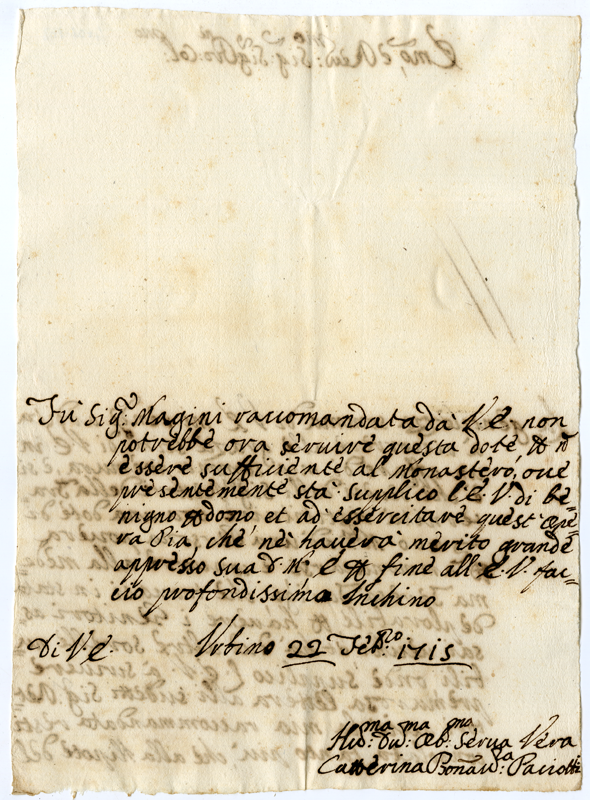 Fú Sig.ᵃ Magini raccomandata dà V. E. non
potrebbe ora servire questa dote, p nō
essere sufficiente al monastero, ove
presentemente stà supplico l'E. V. di be=
nigno pdono, et ad essercitare quest' ope=
ra Pia, che ne haverà merito grande
appresso sua d. M. e p fine all' E. V. fac=
cio profondissimo Inchino
Di V. E. Urbino 22 Feb.ʳᵒ 1715
Hu.ᵐᵃ Du.ᵐᵃ Ob.ᵐᵃ Serva Vera
Catterina Bonav.ʳᵃ Paciotti